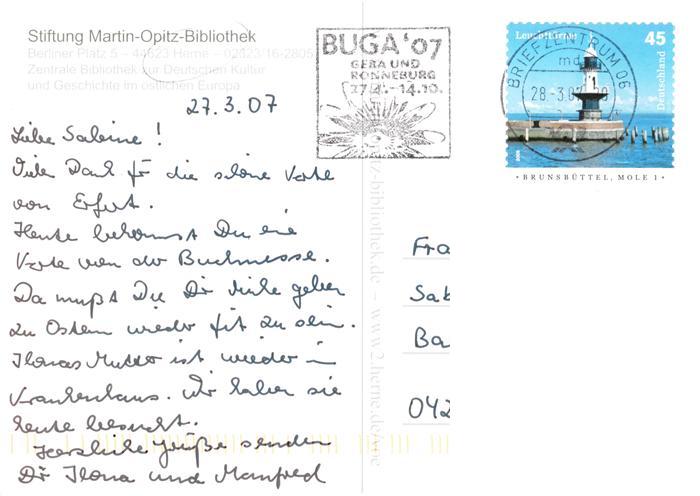 Stiftung Martin-Opitz-Bibliothek
Berliner Platz 5 – 44623 Herne – 02323/16-2805
Zentrale Bibliothek zur Deutschen Kultur
und Geschichte im östlichen Europa
27.3.07
Liebe Sabine!
Vielen Dank für die schöne Karte
von Erfurt.
Heute bekommst Du eine
Karte von der Buchmesse.
Da mußt Du Dir Mühe geben
zu Ostern wieder fit zu sein.
Ilonas Mutter ist wieder im
Krankenhaus. Wir haben sie
heute besucht.
Herzliche Grüße senden
Dir Ilona und Manfred
BUGA '07
GERA UND
RONNEBURG
27.4.-14.10.
BRIEFZENTRUM 06
md
28.-3.07
Leuchttürme
45
Deutschland
• BRUNSBÜTTEL, MOLE 1 •
tz-bibliothek.de – www.2.herne.de
Fra
Sab
Ba
042